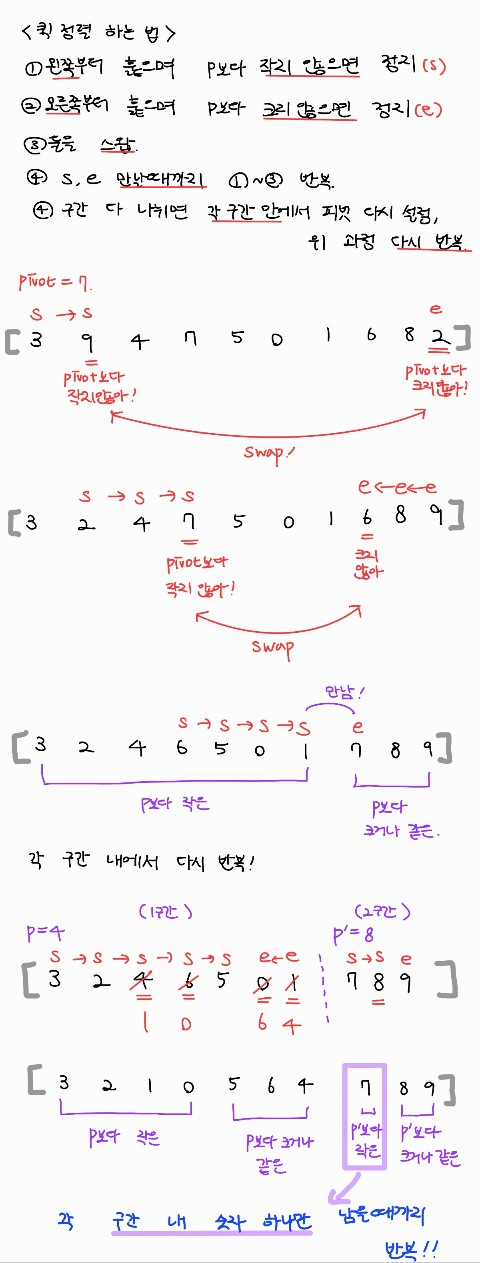 <퀵 정렬 하는 법>
① 왼쪽부터 훑으며 p보다 작지 않으면 정지(s)
② 오른쪽부터 훑으며 p보다 크지 않으면 정지(e)
③ 둘을 스왑.
④ s, e 만날때까지 ①~③ 반복.
④ 구간 다 나뉘면 각 구간 안에서 피벗 다시 설정,
위 과정 다시 반복.
pivot = 7.
s → s e
[3 9 4 7 5 0 1 6 8 2]
pivot보다 pivot보다
작지않아! 크지않아!
swap!
s → s → s e ← e ← e
[3 2 4 7 5 0 1 6 8 9]
pivot보다 크지
작지 않아! 않아
swap
만남!
s → s → s → s e
[3 2 4 6 5 0 1 7 8 9]
p보다 작은 p보다
크거나 같은.
각 구간 내에서 다시 반복!
(1구간) (2구간)
p=4 p'=8
s → s → s → s → s e ← e s → s e
[3 2 4 6 5 0 1 7 8 9]
1 0 6 4
[3 2 1 0 5 6 4 7 8 9]
p보다 작은 p보다 크거나 같은 p'보다 작은 p'보다 크거나 같은
각 구간 내 숫자 하나만 남을때까지
반복!!